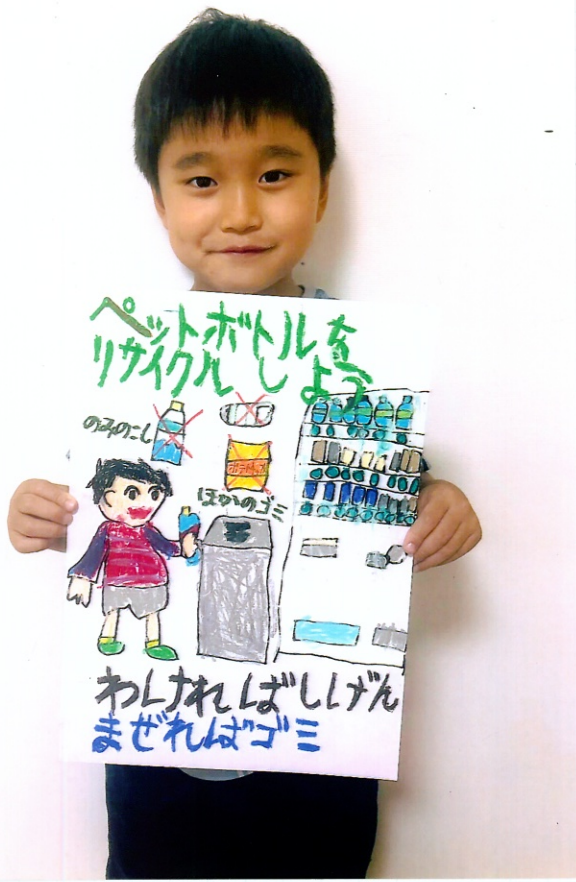 ペットボトルを
リサイクルしよう
のみのこし
ポテトチップ
ほかのゴミ
わければしげん
まぜればゴミ